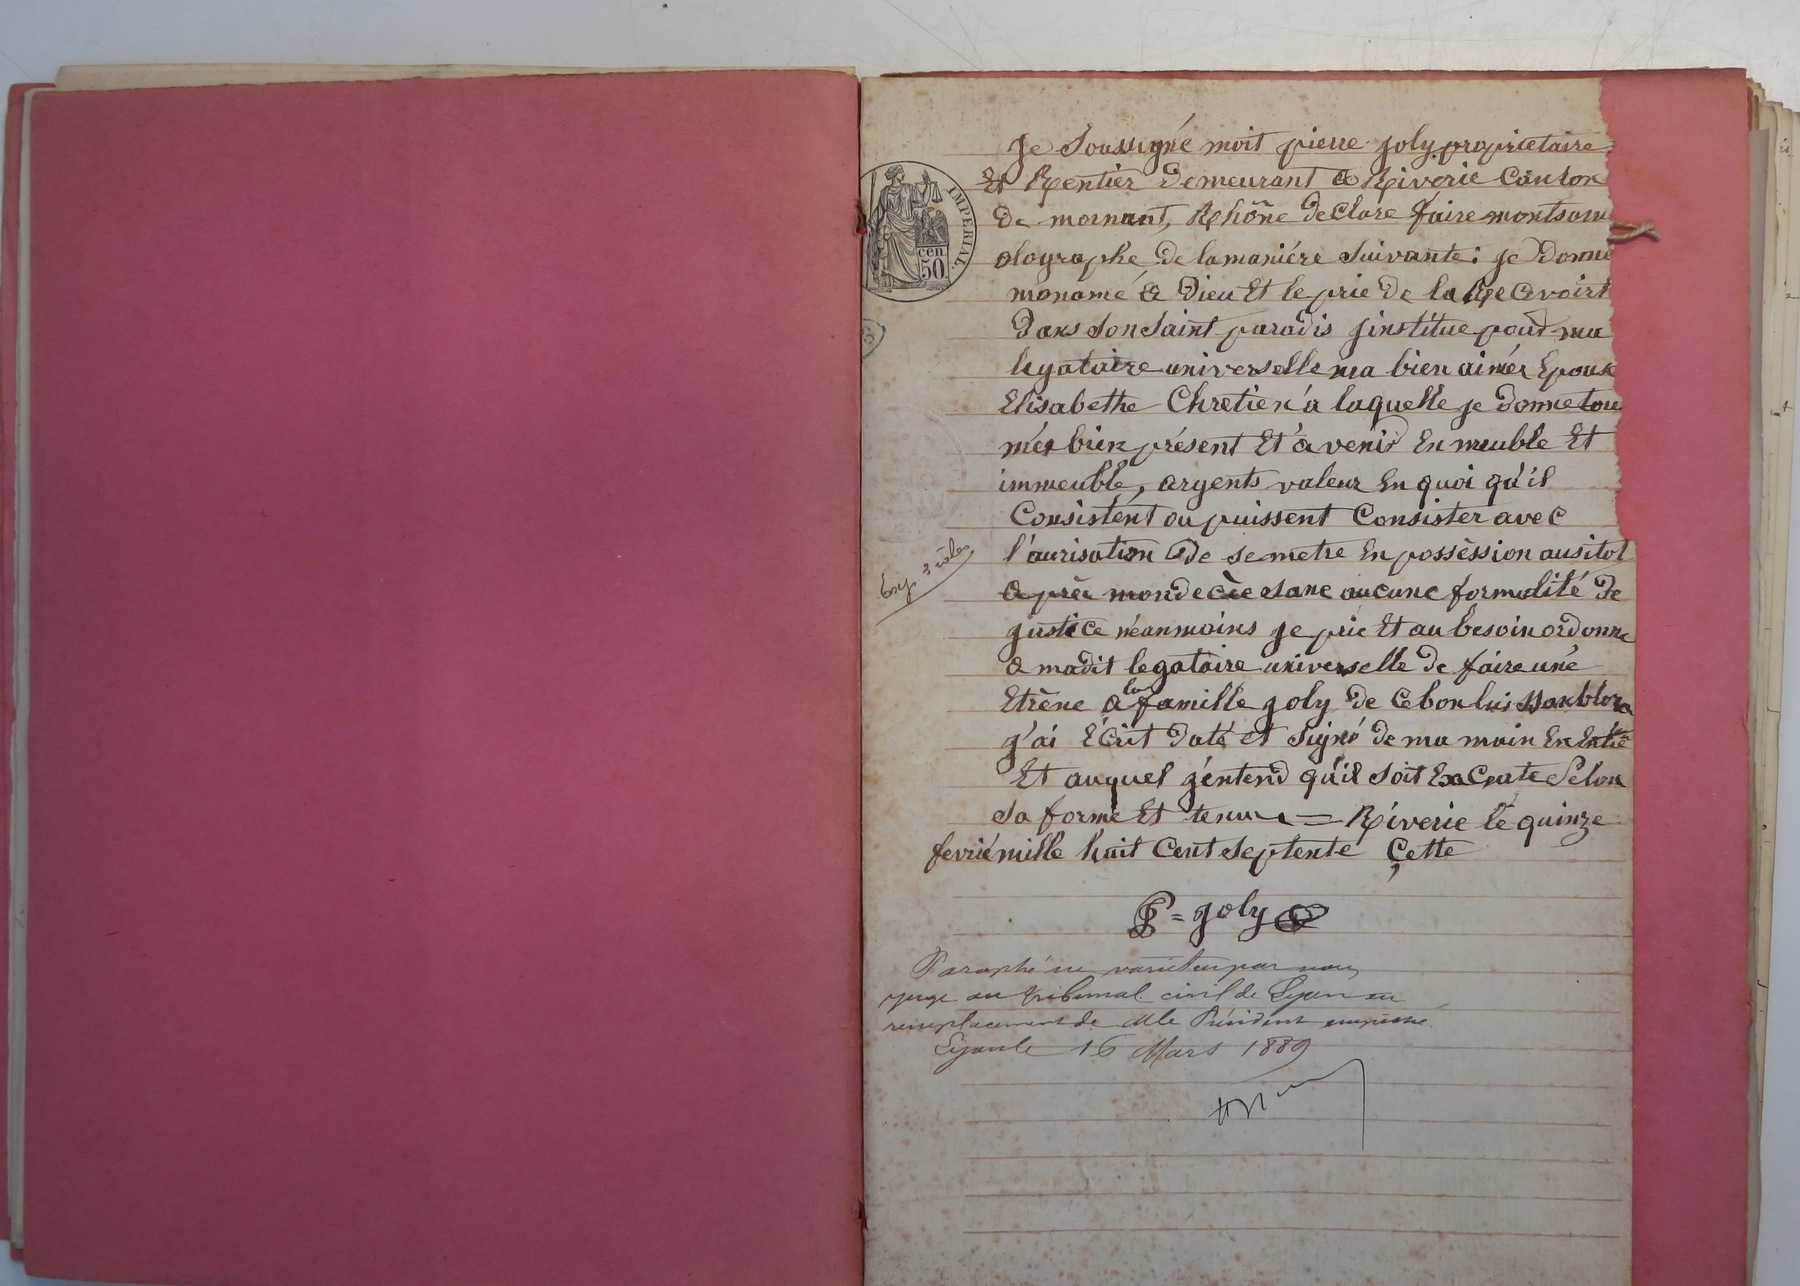 IMPERIAL
cen
50
Je Soussigné moit pierre joly proprietaire
Et Rentier Demeurant a Riverie Canton
De mornant, Rhône Declare faire montsam
olographe De lamaniére Suivante: je Donne
monamé a Dieu Et le prie De la Recevoirt
Dans Son Saint paradis jinstitue pour ma
legataire universelle ma bien aimée Epouse
Elisabethe Chretien a laquelle je Donne tou
mes bien présent Et a venir En meuble Et
immeuble, argents valeur En quoi qu'il
Consistent ou puissent Consister avec
l'aurisation de se metre En possèssion ausitot
Enj 3 rôles
après mondecèe sane aucune formalité De
justice néanmoins je prie Et au besoin ordonne
a madit legataire universelle De faire une
Etrène a la famille joly De Ce bon lui
j'ai Écrit Daté et Signé De ma main En Entie
Et auquel j'entend qu'il Soit Exècute Selon
Sa forme Et tenure = Riverie le quinze
fevrié mille huit Cent Septente Cette
P = joly
Paraphé ne varietur par nous
juge au tribunal civil de Lyon en
remplacement de Mle Président empêché
Lyon le 16 Mars 1889